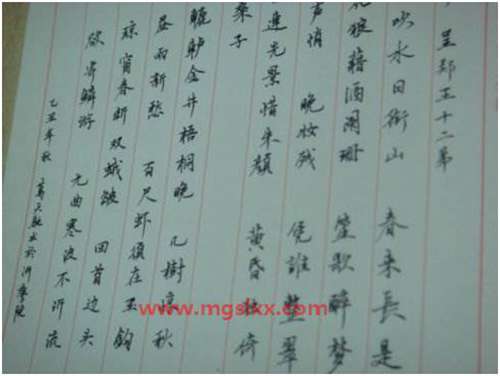 呈郑王十二弟
吹水日衔山 春来長是
花狼藉酒阑珊 笙歌醉梦
声悄 晚妆残 凭誰整翠
連光景惜朱颜 黄昏独倚
桑子
辘轳金井梧桐晚 几樹驚秋
昼雨新愁 百尺虾须在玉鉤
琼窗春断双蛾皱 回首边头
欲寄鳞游 九曲寒波不泝流
乙丑年秋 於沂學院
www.mgslxx.com